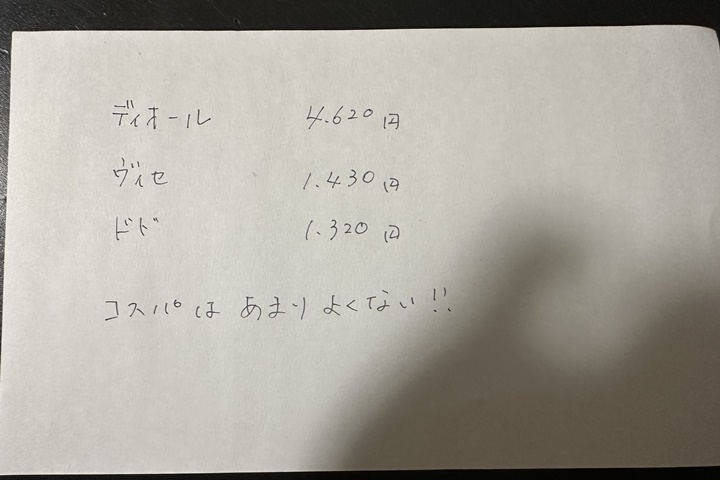 ディオール 4.620円
ヴィセ 1.430円
ドド 1.320円
コスパは あまり よくない!!